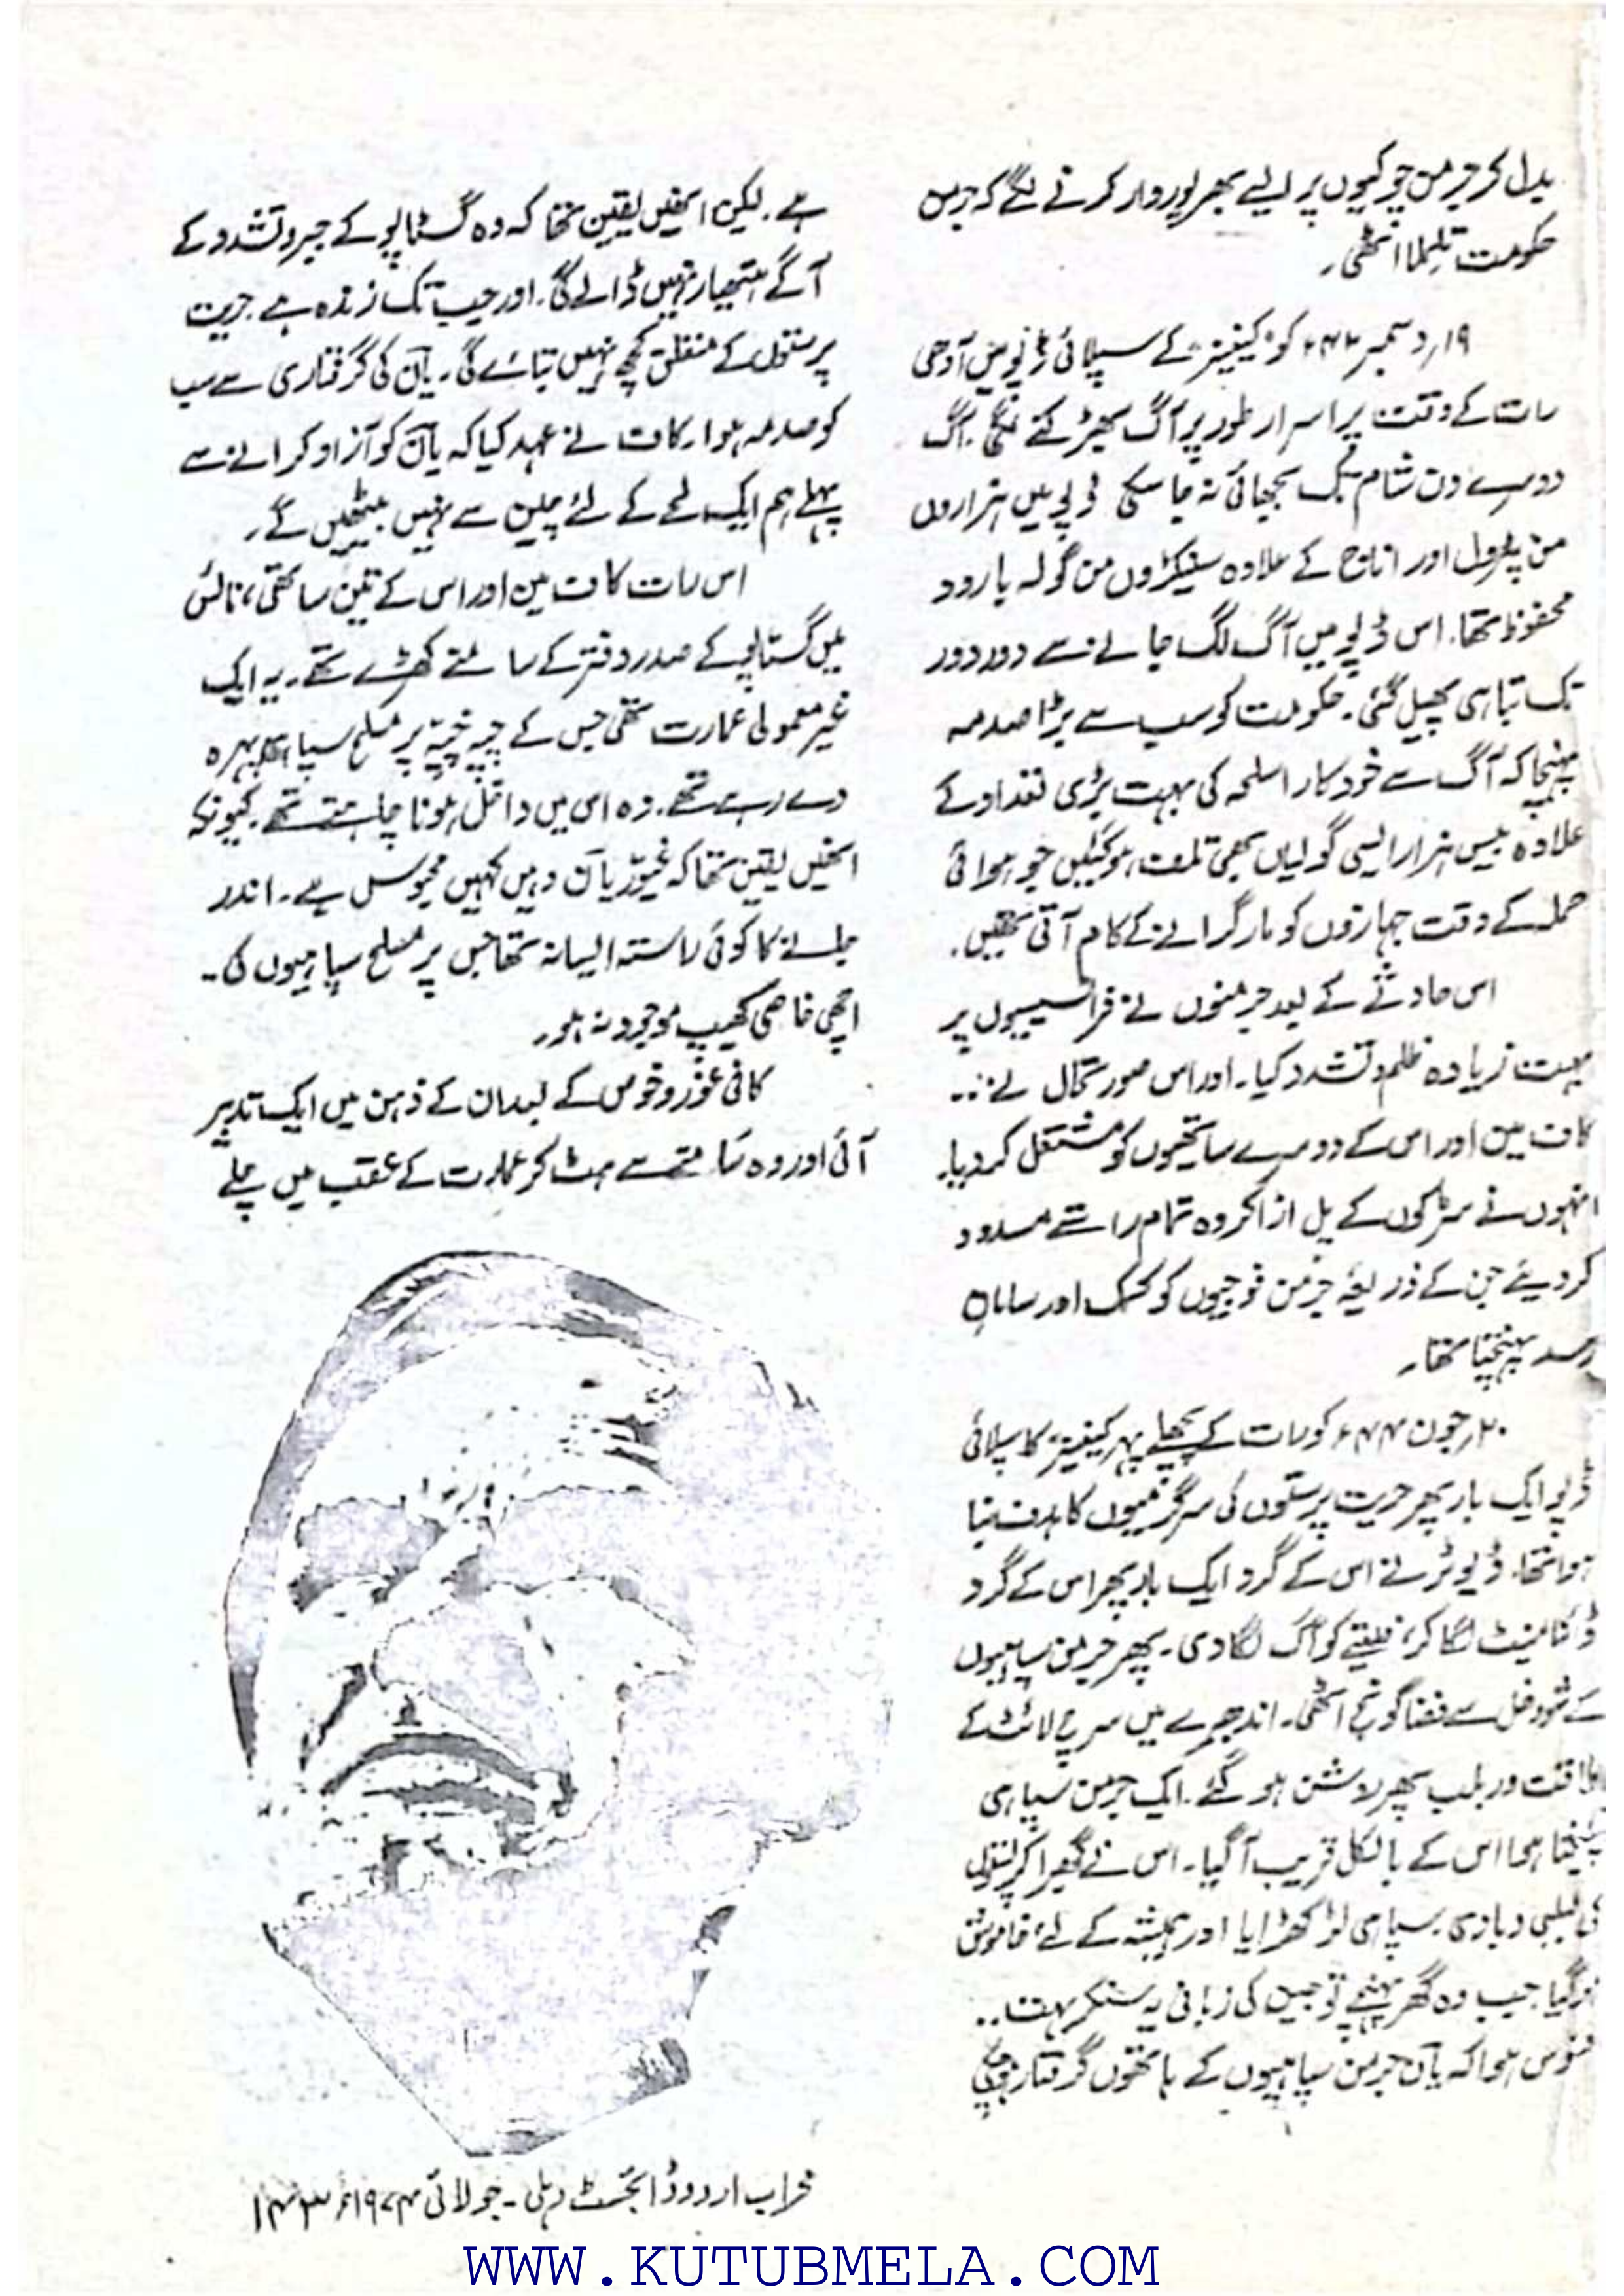 بدل کر جرمن چوکیوں پر ایسے بھرپور وار کرنے لگے کہ جرمن
حکومت تلملا اٹھی۔
۱۹؍ دسمبر ۴۳ء کو "کینیز" کے سپلائی ڈپو میں آدھی
رات کے وقت پراسرار طور پر آگ بھڑکنے لگی۔ آگ
دوسرے دن شام تک بجھائی نہ جا سکی ڈپو میں ہزاروں
من پٹرول اور اناج کے علاوہ سینکڑوں من گولہ بارود
محفوظ تھا۔ اس ڈپو میں آگ لگ جانے سے دور دور
تک تباہی پھیل گئی۔ حکومت کو سب سے بڑا صدمہ
پہنچا کہ آگ سے خودکار اسلحہ کی بہت بڑی تعداد کے
علاوہ بیس ہزار ایسی گولیاں بھی تلف ہو گئیں جو ہوائی
حملہ کے وقت جہازوں کو مار گرانے کے کام آتی تھیں۔
اس حادثے کے بعد جرمنوں نے فرانسیسیوں پر
بہت زیادہ ظلم و تشدد کیا۔ اور اس صورتحال نے ۔۔
کاف مین اور اس کے دوسرے ساتھیوں کو مشتعل کر دیا۔
انہوں نے سڑکوں کے پل اڑا کر وہ تمام راستے مسدود
کر دیئے جن کے ذریعہ جرمن فوجیوں کو کمک اور سامان
رسد پہنچتا تھا۔
۲۰؍ جون ۴۴ء کو رات کے پچھلے پہر کینیز کا سپلائی
ڈپو ایک بار پھر حریت پرستوں کی سرگرمیوں کا ہدف بنا
ہوا تھا۔ ڈیوٹر نے اس کے گرد ایک بار پھر اس کے گرد
ڈائنامیٹ لگا کر، فیتے کو آگ لگا دی۔ پھر جرمن سپاہیوں
کے شور و غل سے فضا گونج اٹھی۔ اندھیرے میں سرچ لائٹ کے
طاقت ور بلب پھر روشن ہو گئے۔ ایک جرمن سپاہی
چیختا ہوا اس کے بالکل قریب آ گیا۔ اس نے گھبرا کر پستول
کی لبلبی دبا دی۔ سپاہی لڑکھڑایا اور ہمیشہ کے لئے خاموش
ہو گیا۔ جب وہ گھر پہنچے تو جین کی زبانی یہ سنکر بہت ۔۔
افسوس ہوا کہ یاں جرمن سپاہیوں کے ہاتھوں گرفتار ہو چکی
ہے۔ لیکن انھیں یقین تھا کہ وہ گسٹاپو کے جبر و تشدد کے
آگے ہتھیار نہیں ڈالے گی۔ اور جب تک زندہ ہے۔ حریت
پرستوں کے متعلق کچھ نہیں بتائے گی۔ یاں کی گرفتاری سے سب
کو صدمہ ہوا۔ کاف نے عہد کیا کہ یاں کو آزاد کرانے سے
پہلے ہم ایک لمحے کے لئے چین سے نہیں بیٹھیں گے۔
اس رات کاف مین اور اس کے تین ساتھی، نائس
میں گستاپو کے صدر دفتر کے سامنے کھڑے تھے۔ یہ ایک
غیر معمولی عمارت تھی جس کے چپہ چپہ پر مسلح سپاہی پہرہ
دے رہے تھے۔ وہ اس میں داخل ہونا چاہتے تھے۔ کیونکہ
انھیں یقین تھا کہ غیور یاں وہیں کہیں محبوس ہے۔ اندر
جانے کا کوئی راستہ ایسا نہ تھا جس پر مسلح سپاہیوں کی۔
اچھی خاصی کھیپ موجود نہ ہو۔
کافی غور و خوض کے بعد ان کے ذہن میں ایک تدبیر
آئی اور وہ سامنے سے ہٹ کر عمارت کے عقب میں چلے
محراب اردو ڈائجسٹ دہلی۔ جولائی ۱۹۷۴ء ۱۴۳
WWW.KUTUBMELA.COM